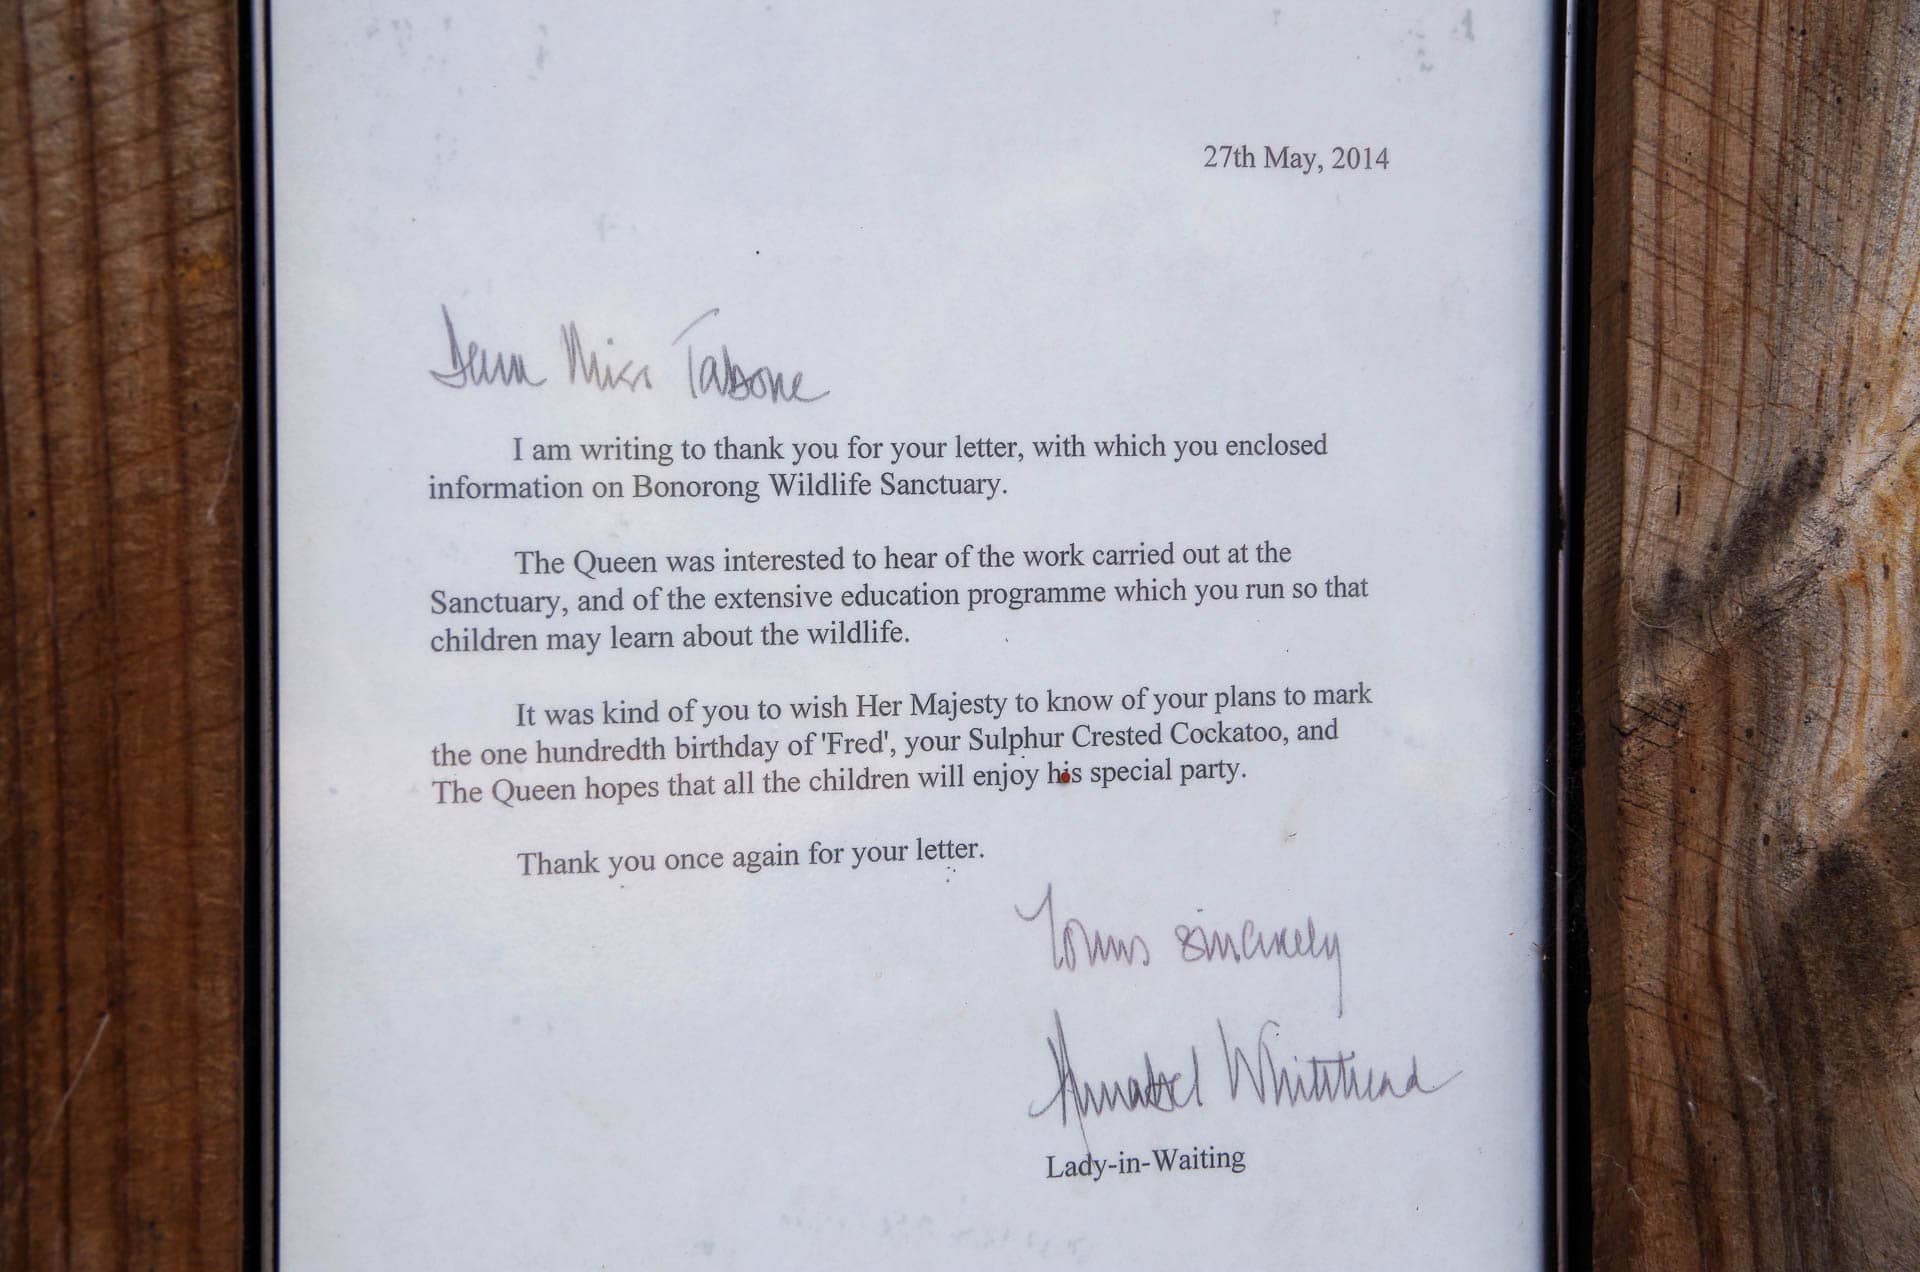 27th May, 2014
Dear Miss Tabone
I am writing to thank you for your letter, with which you enclosed
information on Bonorong Wildlife Sanctuary.
The Queen was interested to hear of the work carried out at the
Sanctuary, and of the extensive education programme which you run so that
children may learn about the wildlife.
It was kind of you to wish Her Majesty to know of your plans to mark
the one hundredth birthday of 'Fred', your Sulphur Crested Cockatoo, and
The Queen hopes that all the children will enjoy his special party.
Thank you once again for your letter.
Yours sincerely
Annabel Whitehead
Lady-in-Waiting